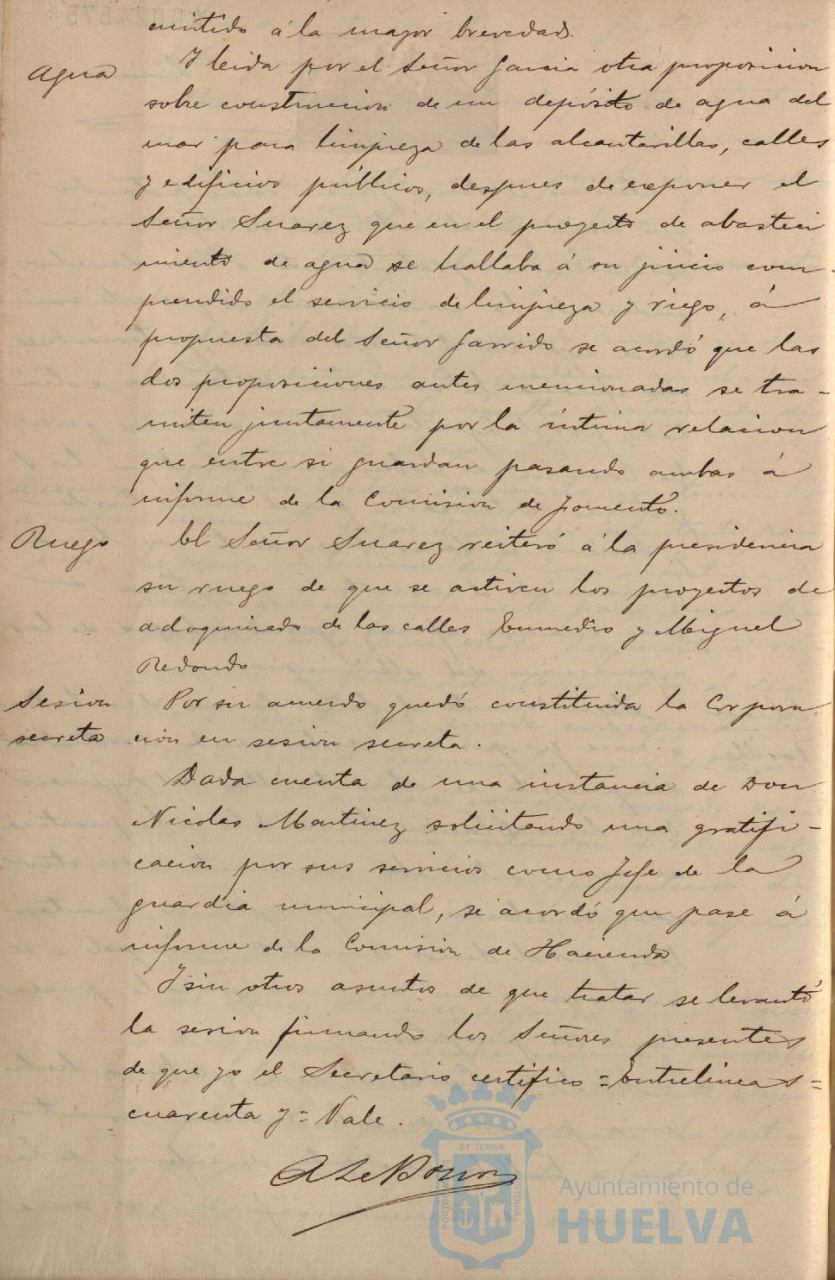 emitido á la mayor brevedad.
Agua
Y leida por el Señor Garcia otra proposicion
sobre construccion de un depósito de agua del
mar para limpieza de las alcantarillas, calles
y edificios públicos, despues de exponer el
Señor Suarez que en el proyecto de abasteci
miento de agua se hallaba á su juicio com-
prendido el servicio de limpieza y riego, á
propuesta del Señor Garrido se acordó que las
dos proposiciones antes mencionadas se tra-
miten juntamente por la íntima relacion
que entre si guardan pasando ambas á
informe de la Comision de Fomento.
Ruego
El Señor Suarez reiteró á la presidencia
su ruego de que se activen los proyectos de
adoquinado de las calles Enmedio y Miguel
Redondo
Sesion
secreta
Por su acuerdo quedó constituida la Corpora
cion en sesion secreta.
Dada cuenta de una instancia de Don
Nicolas Martinez solicitando una gratifi-
cacion por sus servicios como Jefe de la
guardia municipal, se acordó que pase á
informe de la Comision de Hacienda
Y sin otros asuntos de que tratar se levantó
la sesion firmando los Señores presentes
de que yo el Secretario certifico = Entrelineas =
cuarenta y = Vale.
ET TERRÆ
PORTUS MARIS
CUSTODIA
Ayuntamiento de
HUELVA